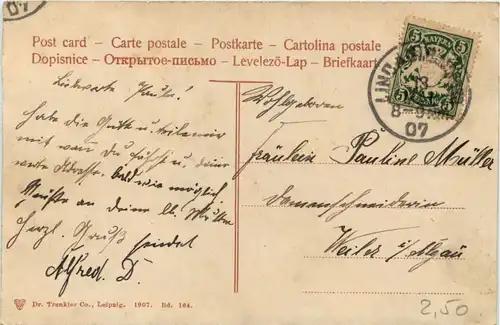 Post card – Carte postale – Postkarte – Cartolina postale
Dopisnice – Открытое-письмо – Levelező-Lap – Briefkaart
07
BAYERN
5 5
5 5
LINDAU
8
07
Liebwerte Paula!
Habe die Güte u.
mit wann Du u. deine
werte Adresse. bald wie möglich
an deine lb. Mutter
herzl. Gruß sendet
Alfred. D.
Wohlgeboren
Fräulein Pauline Müller
Damenschneiderin
Weiler i/Algäu
Dr. Trenkler Co., Leipzig. 1907. Ed. 164.
2,50